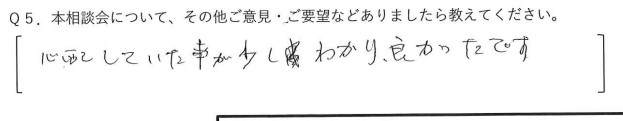 Q5．本相談会について、その他ご意見・ご要望などありましたら教えてください。
心配していた事が少しわかり、良かったです